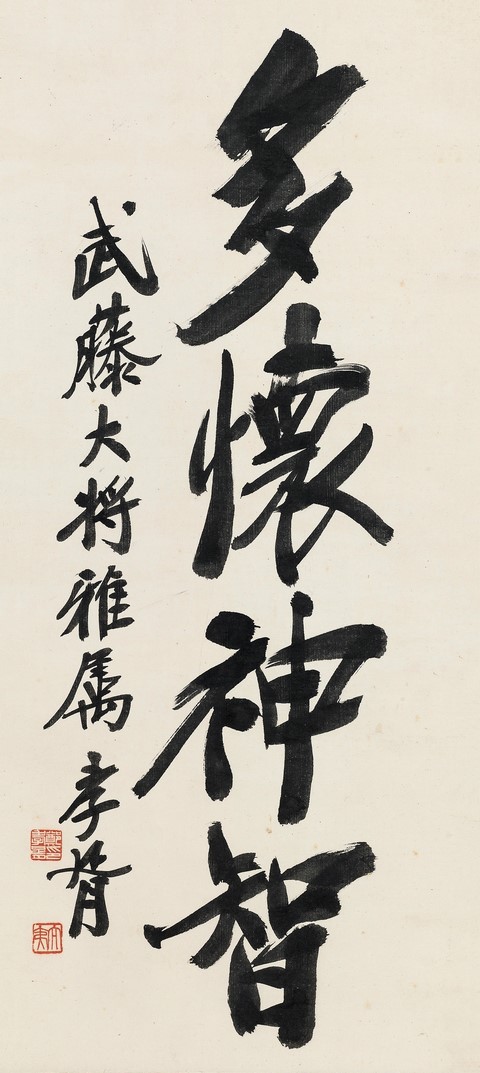 多懷神智
武藤大将雅属 孝胥